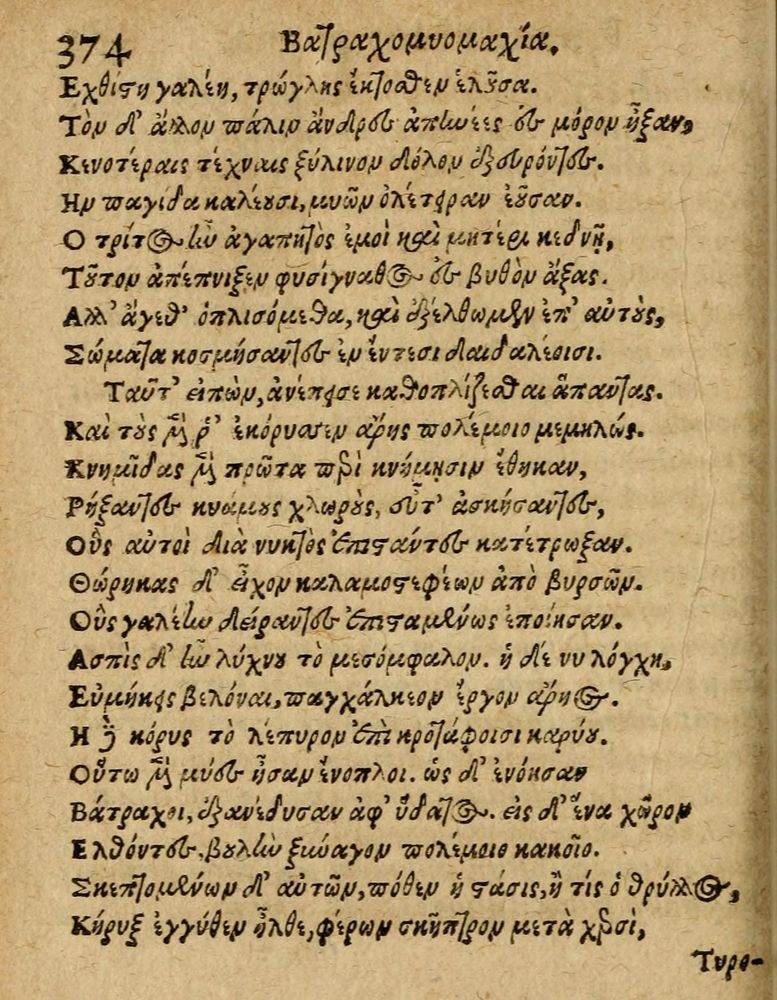 374 Βατραχομυομαχία.
Εχθίστη γαλέη, τρώγλης ἔκτοσθεν ἑλοῦσα.
Τὸν δ' ἄλλον πάλιν ἄνδρες ἀπηνέες ἐς μόρον ἦξαν,
Κενοτέραις τέχναις ξύλινον δόλον ἐξευρόντες.
Ην παγίδα καλέουσι, μυῶν ὀλέτειραν ἐοῦσαν.
Ο τρίτος ἦν ἀγαπητὸς ἐμοὶ καὶ μητέρι κεδνῇ,
Τοῦτον ἀπέπνιξεν φυσίγναθος ἐς βυθὸν ἄξας.
Αλλ' ἄγεθ' ὁπλισόμεθα, καὶ ἐξέλθωμεν ἐπ' αὐτοὺς,
Σώματα κοσμήσαντες ἐν ἔντεσι δαιδαλέοισι.
Ταῦτ' εἰπὼν, ἀνέπεισε καθοπλίζεσθαι ἅπαντας.
Καὶ τοὺς μὲν ῥ' ἐκόρυσσεν ἄρης πολέμοιο μεμηλώς.
Κνημῖδας μὲν πρῶτα περὶ κνήμησιν ἔθηκαν,
Ρήξαντες κυάμους χλωροὺς, εὖτ' ἀσκήσαντες,
Οὓς αὐτοὶ διὰ νυκτὸς ἐπιστάντες κατέτρωξαν.
Θώρηκας δ' εἶχον καλαμοστεφέων ἀπὸ βυρσῶν.
Οὓς γαλέην δείραντες ἐπισταμένως ἐποίησαν.
Ασπὶς δ' ἦν λύχνου τὸ μεσόμφαλον. ἡ δέ νυ λόγχη,
Εὐμήκεις βελόναι, παγχάλκεον ἔργον ἄρηος.
Η δὲ κόρυς τὸ λέπυρον ἐπὶ κροτάφοισι καρύου.
Οὕτω μὲν μύες ἦσαν ἔνοπλοι. ὡς δ' ἐνόησαν
Βάτραχοι, ἐξανέδυσαν ἀφ' ὕδατος. εἰς δ' ἕνα χῶρον
Ελθόντες, βουλὴν ξυνάγον πολέμοιο κακοῖο.
Σκεπτομένων δ' αὐτῶν, πόθεν ἡ στάσις, ἢ τίς ὁ θρύλλος,
Κήρυξ ἐγγύθεν ἦλθε, φέρων σκῆπτρον μετὰ χερσὶ,
Τυρο-